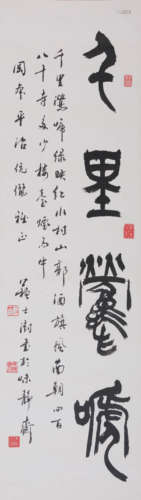 千里鶯啼
千里鶯啼绿映红水村山郭酒旗風南朝四百
八十寺多少樓臺烟雨中
國本平治伉儷雅正
蘇士澍書於靜齋